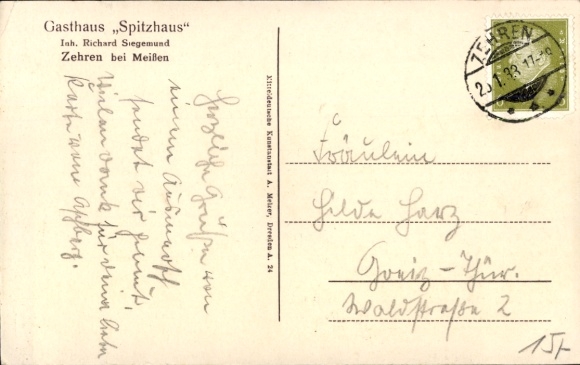 Gasthaus „Spitzhaus"
Inh. Richard Siegemund
Zehren bei Meißen
Herzliche Grüße von
einem Ausmarsch
sendet
Vielen Dank für deine liebe
Karte
Mitteldeutsche Kunstanstalt A. Metzer, Dresden A. 24
ZEHREN
Fräulein
Hilde Harz
Greiz-Thür.
Waldstraße 2
15,-